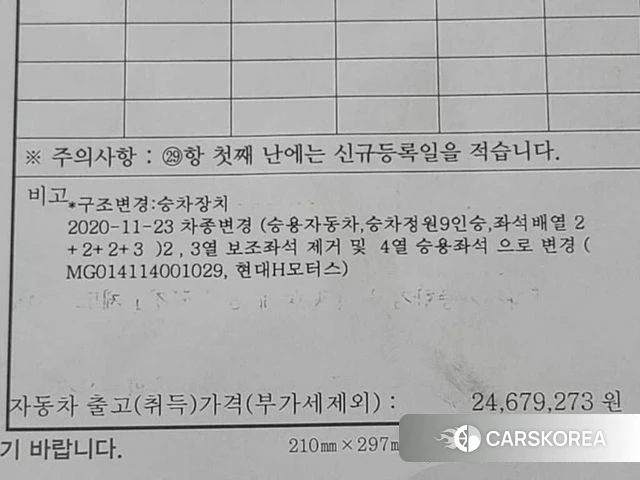 ※ 주의사항 : ㉙항 첫째 난에는 신규등록일을 적습니다.
비고 *구조변경:승차장치
2020-11-23 차종변경 (승용자동차,승차정원9인승,좌석배열 2
+2+2+3 )2 , 3열 보조좌석 제거 및 4열 승용좌석 으로 변경 (
MG014114001029, 현대H모터스)
자동차 출고(취득)가격(부가세제외) : 24,679,273 원
기 바랍니다. 210㎜×297
CARSKOREA